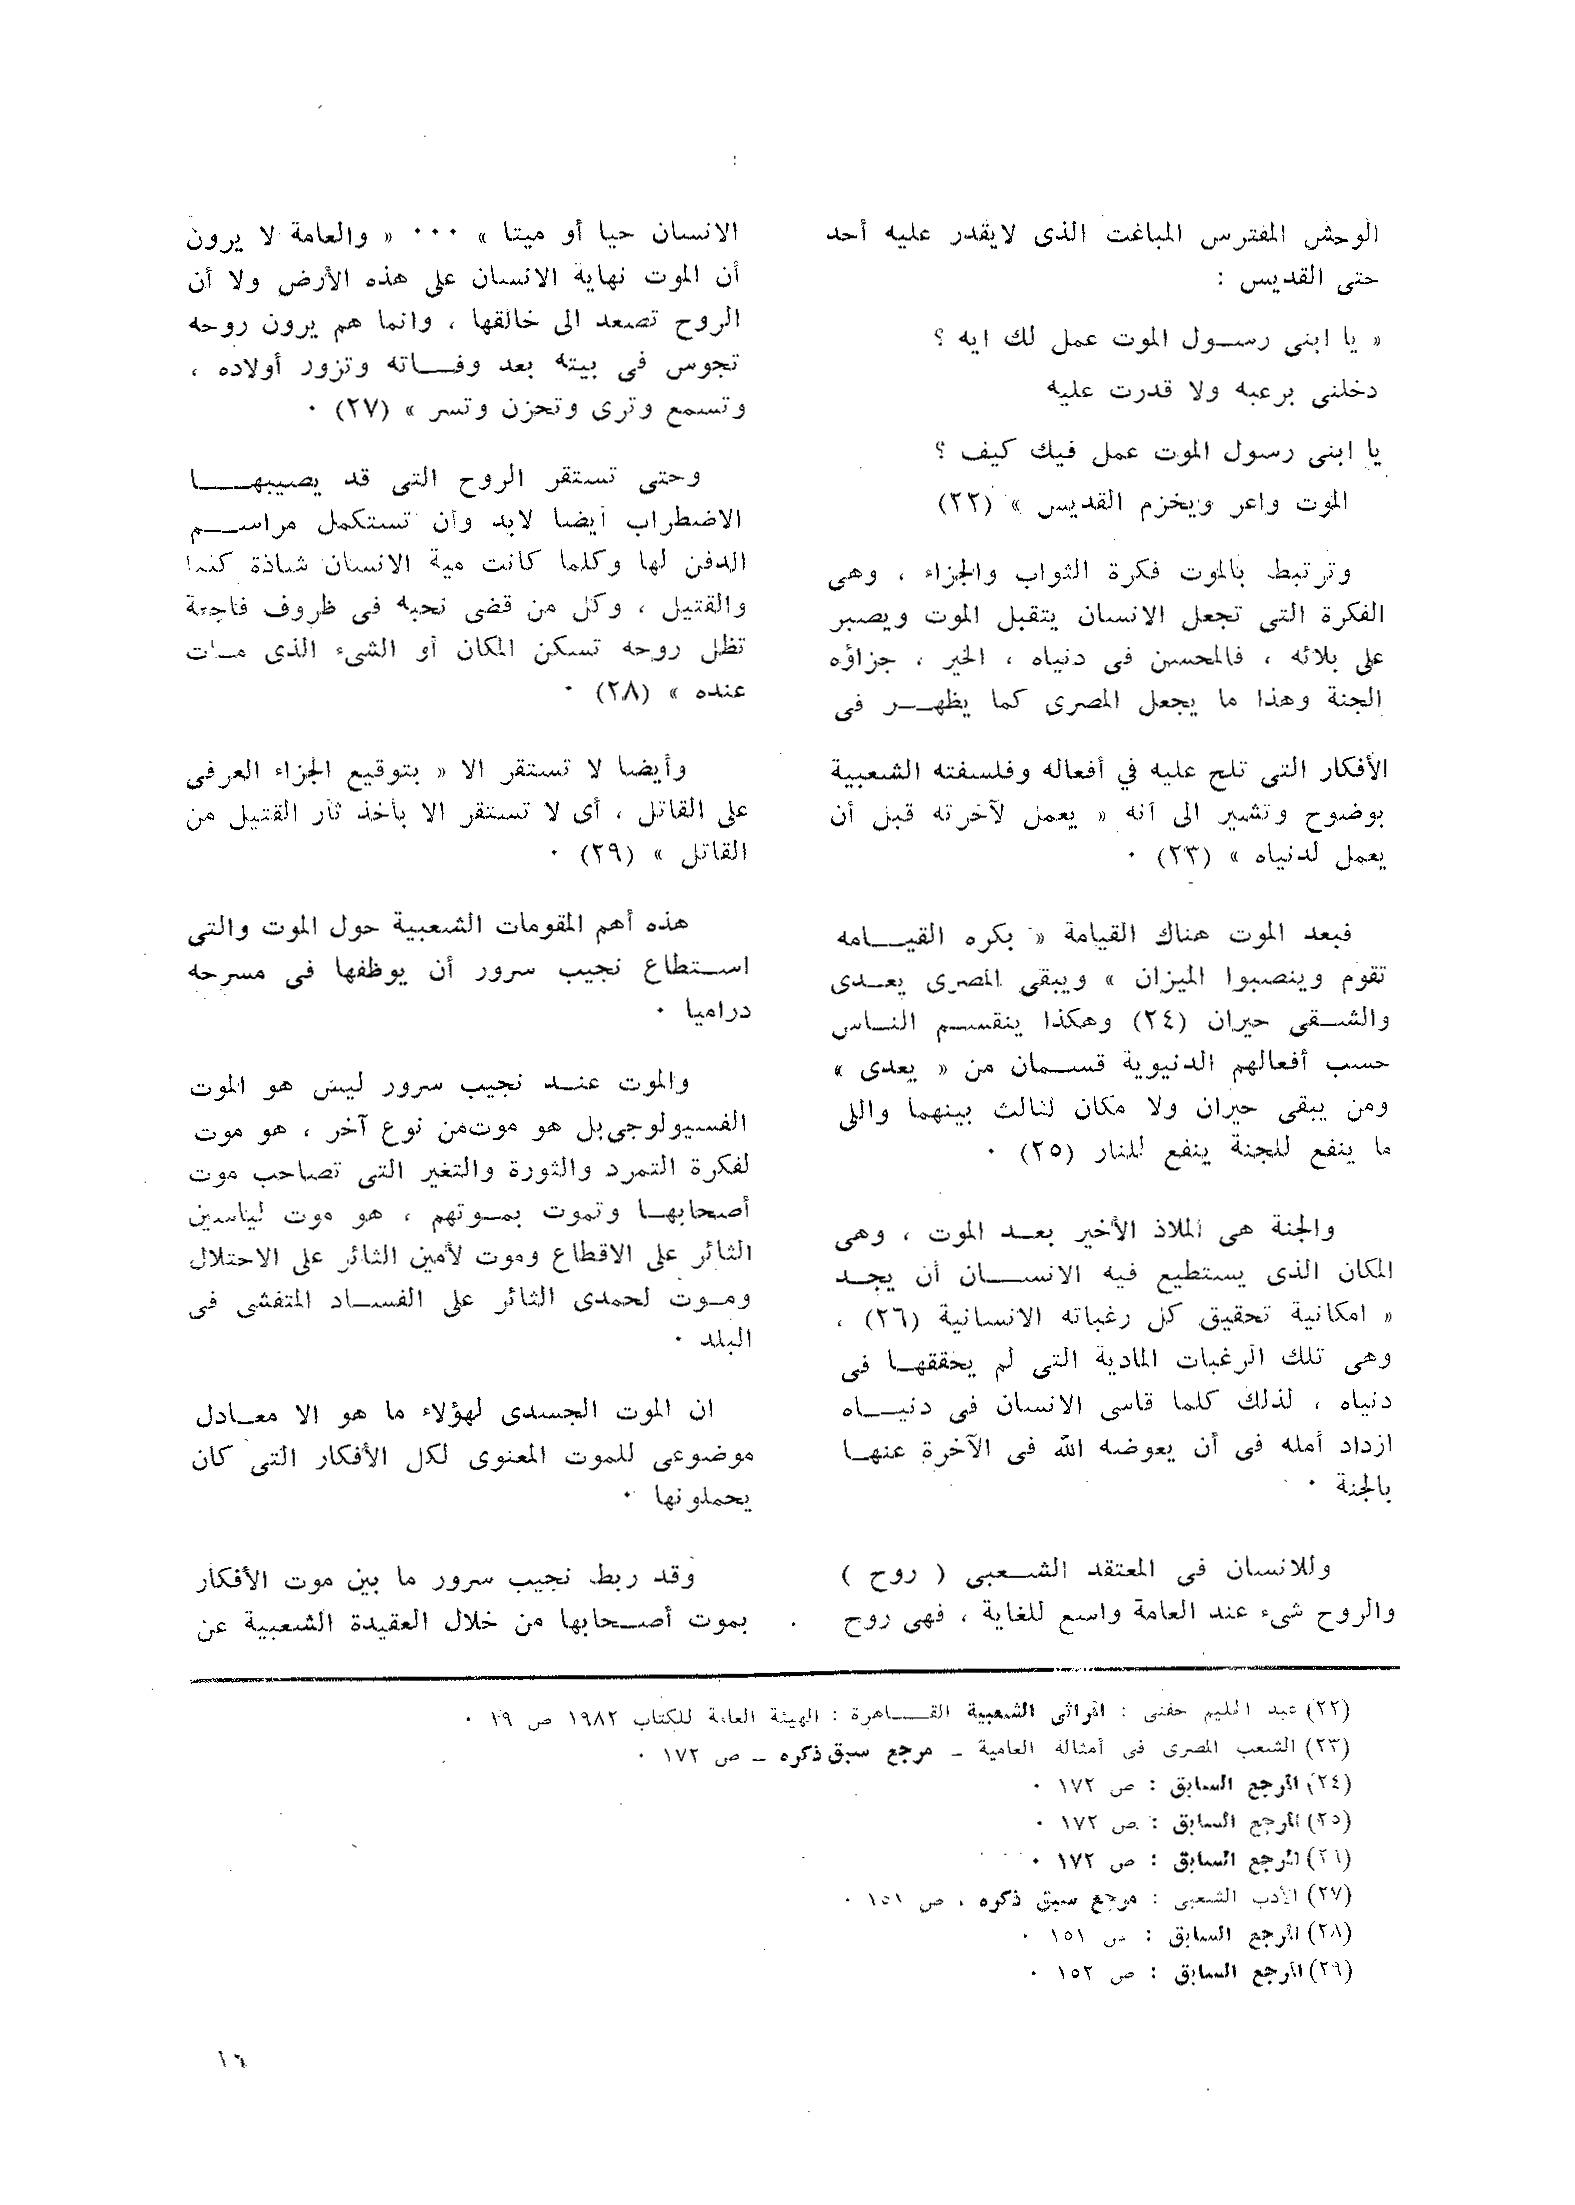 الوحش المفترس المباغت الذى لايقدر عليه أحد
حتى القديس :
« يا ابنى رســول الموت عمل لك ايه ؟
دخلنى برعبه ولا قدرت عليه
يا ابنى رسول الموت عمل فيك كيف ؟
الموت واعر ويخزم القديس » (٢٢)
وترتبط بالموت فكرة الثواب والجزاء ، وهى
الفكرة التى تجعل الانسان يتقبل الموت ويصبر
على بلائه ، فالمحسن فى دنياه ، الخير ، جزاؤه
الجنة وهذا ما يجعل المصرى كما يظهــر فى
الأفكار التى تلح عليه في أفعاله وفلسفته الشعبية
بوضوح وتشير الى أنه « يعمل لآخرته قبل أن
يعمل لدنياه » (٢٣) ٠
فبعد الموت هناك القيامة « بكره القيــامه
تقوم وينصبوا الميزان » ويبقى المصرى يعــدى
والشــقى حيران (٢٤) وهكذا ينقســم النــاس
حسب أفعالهم الدنيوية قســمان من « يعدى »
ومن يبقى حيران ولا مكان لثالث بينهما واللى
ما ينفع للجنة ينفع للنار (٢٥) ٠
والجنة هى الملاذ الأخير بعــد الموت ، وهى
المكان الذى يستطيع فيه الانســان أن يجــد
« امكانية تحقيق كل رغباته الانسانية (٢٦) ،
وهى تلك الرغبات المادية التى لم يحققهــا فى
دنياه ، لذلك كلما قاسى الانسان فى دنيــاه
ازداد أمله فى أن يعوضه الله فى الآخرة عنهــا
بالجنة ٠
وللانسان فى المعتقد الشــعبى ( روح )
والروح شىء عند العامة واسع للغاية ، فهى روح
الانسان حيا أو ميتا » ٠٠٠ « والعامة لا يرون
أن الموت نهاية الانسان على هذه الأرض ولا أن
الروح تصعد الى خالقها ، وانما هم يرون روحه
تجوس فى بيته بعد وفــاته وتزور أولاده ،
وتسمع وترى وتحزن وتسر » (٢٧) ٠
وحتى تستقر الروح التى قد يصيبهــا
الاضطراب أيضا لابد وأن تستكمل مراســم
الدفن لها وكلما كانت ميتة الانسان شاذة
والقتيل ، وكل من قضى نحبه فى ظروف فاجعة
تظل روحه تسكن المكان أو الشىء الذى مــات
عنده » (٢٨) ٠
وأيضا لا تستقر الا « بتوقيع الجزاء العرفى
على القاتل ، أى لا تستقر الا بأخذ ثأر القتيل من
القاتل » (٢٩) ٠
هذه أهم المقومات الشعبية حول الموت والتى
اســتطاع نجيب سرور أن يوظفها فى مسرحه
دراميا ٠
والموت عنــد نجيب سرور ليس هو الموت
الفسيولوجى بل هو موت من نوع آخر ، هو موت
لفكرة التمرد والثورة والتغير التى تصاحب موت
أصحابهــا وتموت بمــوتهم ، هو موت لياسين
الثائر على الاقطاع وموت لأمين الثائر على الاحتلال
ومــوت لحمدى الثائر على الفســاد المتفشى فى
البلد ٠
ان الموت الجسدى لهؤلاء ما هو الا معــادل
موضوعى للموت المعنوى لكل الأفكار التى كان
يحملونها ٠
وقد ربط نجيب سرور ما بين موت الأفكار
بموت أصــحابها من خلال العقيدة الشعبية عن
(٢٢) عبد الحليم حفنى : المراثى الشعبية القــاهرة : الهيئة العامة للكتاب ١٩٨٢ ص ١٩ ٠
(٢٣) الشعب المصرى فى أمثاله العامية ـ مرجع سبق ذكره ـ ص ١٧٢ ٠
(٢٤) المرجع السابق : ص ١٧٢ ٠
(٢٥) المرجع السابق : ص ١٧٢ ٠
(٢٦) المرجع السابق : ص ١٧٢ ٠
(٢٧) الأدب الشعبى : مرجع سبق ذكره ، ص ١٥١ ٠
(٢٨) المرجع السابق : ص ١٥١ ٠
(٢٩) المرجع السابق : ص ١٥٢ ٠
١٦